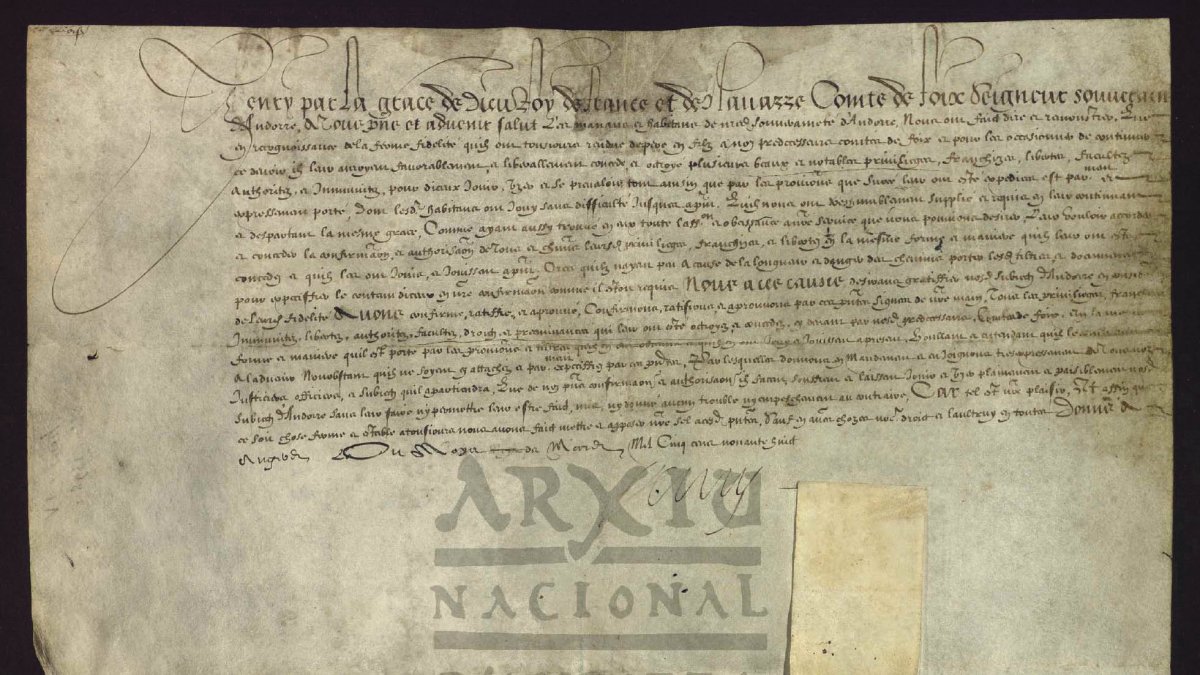 Henry par la grace de Dieu Roy de France et de Navarre Comte de Foix Seigneur souverain
d'Andorre, A tous pñs et advenir salut Les manans et habitans de nred souveraineté d'Andorre, Nous ont faict dire et remonstrer, Que
en recognoissance de la ferme fidelité quilz ont tousiours rendue de pere en filz a noz predecesseurs comtes de foix et pour les occasionner de continuer
ce devoir ilz leur auroyent favorablement et liberallement concedé et octroyé plusieurs beaux et notables privilieges, franchizes, libertez, facultez
authoritez, et Immunitez, pour diceux Jouir, et se prevaloir tout ainsin que par les provisions que sur ce leur ont esté expediées est par et
expressement porté Dont lesd habitans ont Jouy sans difficulté Jusques a Quilz nous ont supplié et requis en leur continuant
et despartant la mesme grace, Comme ayant aussy trouvé en eux toute et obeissance a nre service que nous pouvions desirer Leur vouloir accorder
et conceder la confirmaon, et authorisaon de tous et chūns leursd privilieges, franchizes, et libertez en la mesme forme et maniere quilz leur ont esté
concedez et quilz les ont Jouis, et Jouissent Ores quilz nayent peu a cause de la longueur et dangers des chemins porter lesd tiltres et documents
pour expeciffier le contenu diceux en nre confirmaon comme il estoit requis Nous a ces causes desirans gratiffier nosd Subiectz d'Andorre en
de leurd fidelité Avons confirmé, ratiffié, et aprouvé, Confirmons, ratifions, et aprouvons par ces pñtes signées de nre main, Tous les privilieges, franchizes
Immunitez, libertez, authoritez, facultez, droictz, et preeminances qui leur ont esté octroyez et concedez, par nosd predecesseurs, Comtes de foix, en la mesme
forme et maniere quil est porté par les provisions et tiltres Jouy et Jouissent a present, Voullans et entendans quilz
A ladvenir Nonobstant quilz ne soyent attachez et par expeciffiez par ces pñtes, Par lesquelles donnons en Mandement et enjoignons tres expressement A tous noz
Justiciers officiers, et subiectz quil apartiendra, Que de noz pñs confirmaon, et authorisaon ilz facent, souffrent et laissent Jouir et plainement et paisiblement nosd
Subiectz d'Andorre sans leur faire ny permettre leur estre faict, mis, ny donné aucun trouble ny empeschement au contraire, Car tel est nre plaisir, Et affin que
ce soit chose ferme et estable a tousiours nous avons faict mettre et apposer nre scel a cesd pñtes, Sauf en autres chozes nre droict et lautruy en toutes Donné a
Angers Au Moys de Mars Mil Cinq cens nonante huict
Henry
ARXIU
NACIONAL